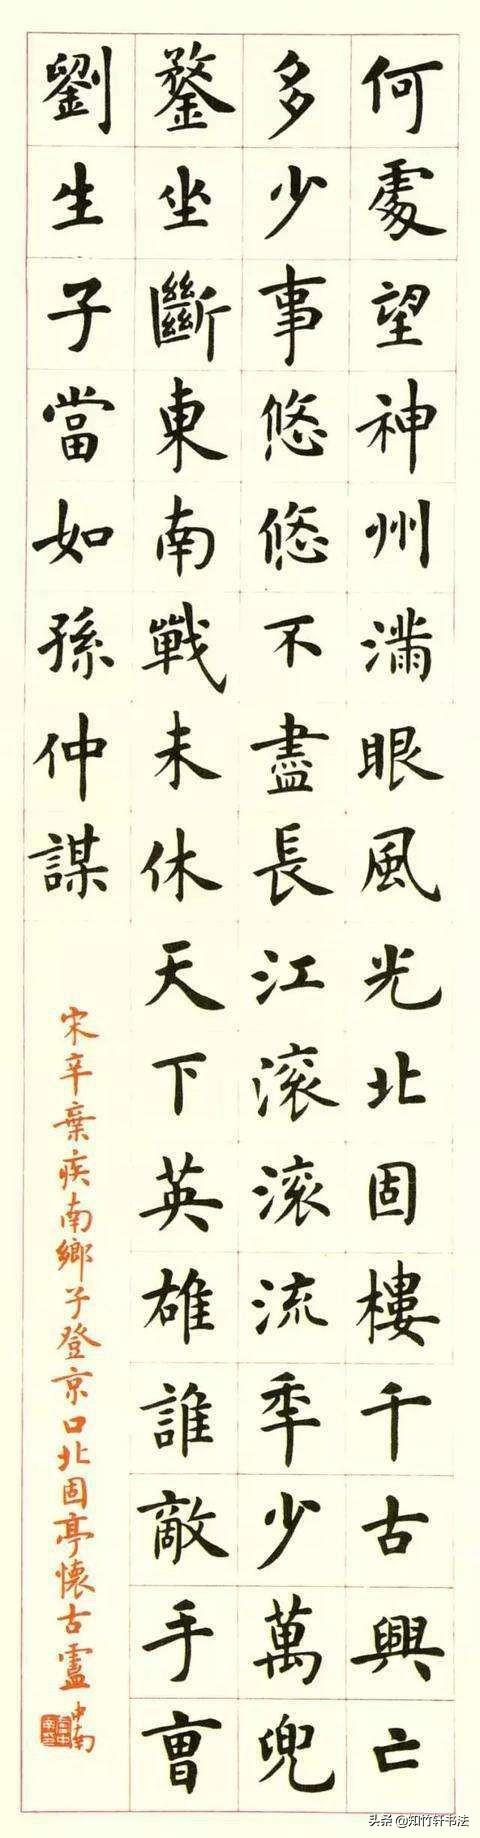 何處望神州滿眼風光北固樓千古興亡
多少事悠悠不盡長江滚滚流年少萬兜
鍪坐斷東南戰未休天下英雄誰敵手曹
劉生子當如孫仲謀
宋辛棄疾南鄉子登京口北固亭懷古盧中南
头条 @知竹轩书法